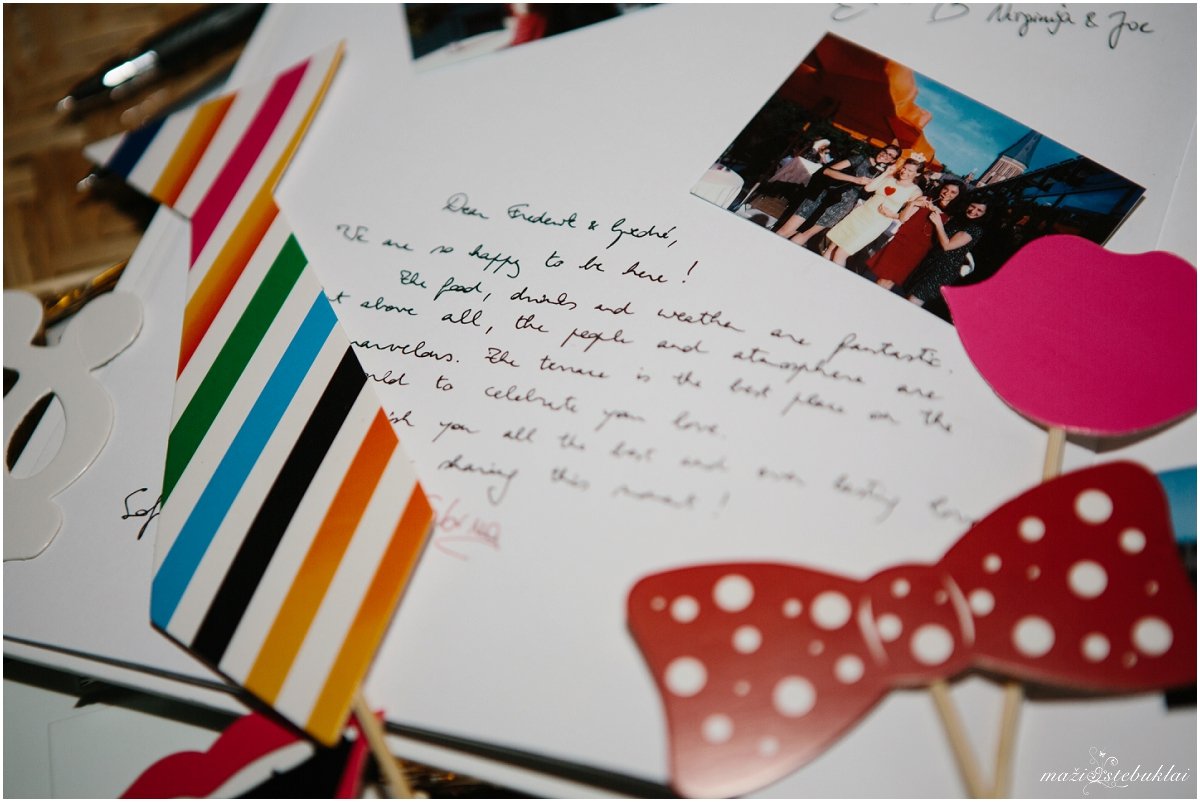 & Joe
Dear Frederik & Giedrė,
We are so happy to be here!
The food, drinks and weather are fantastic.
t above all, the people and atmosphere are
marvelous. The terrace is the best place on the
orld to celebrate your love.
ish you all the best and ever lasting love
sharing this moment!
maži stebuklai